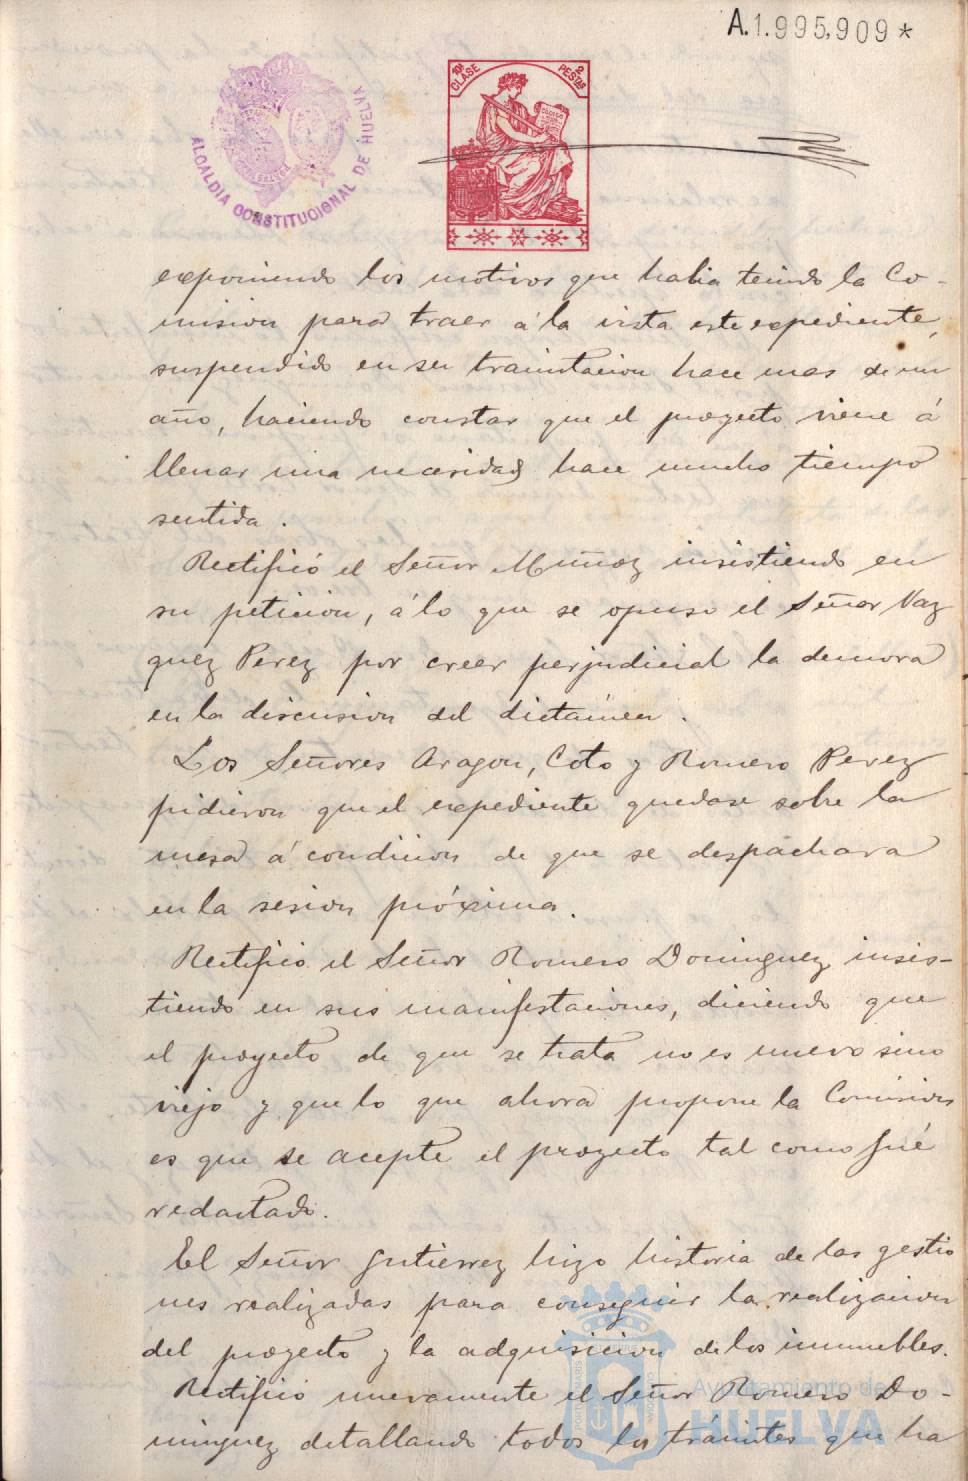 A.1.995,909*
ALCALDIA CONSTITUCIONAL DE HUELVA
10ª CLASE
2 PESTAS
exponiendo los motivos que habia tenido la Co-
mision para traer á la vista este expediente,
suspendido en su tramitacion hace mas de un
año, haciendo constar que el proyecto viene á
llenar una necesidad hace mucho tiempo
sentida.
Rectificó el Señor Muñoz insistiendo en
su peticion, á lo que se opuso el Señor Vaz
quez Perez por creer perjudicial la demora
en la discusion del dictámen.
Los Señores Aragon, Coto y Romero Perez
pidieron que el expediente quedase sobre la
mesa á condicion de que se despachara
en la sesion próxima.
Rectificó el Señor Romero Dominguez insis-
tiendo en sus manifestaciones, diciendo que
el proyecto de que se trata no es nuevo sino
viejo y que lo que ahora propone la Comision
es que se acepte el proyecto tal como fué
redactado.
El Señor Gutierrez hizo historia de las gestio
nes realizadas para conseguir la realizacion
del proyecto y la adquisicion de los inmuebles.
Rectificó nuevamente el Señor Romero Do-
minguez detallando todos los trámites que ha
Ayuntamiento de
HUELVA